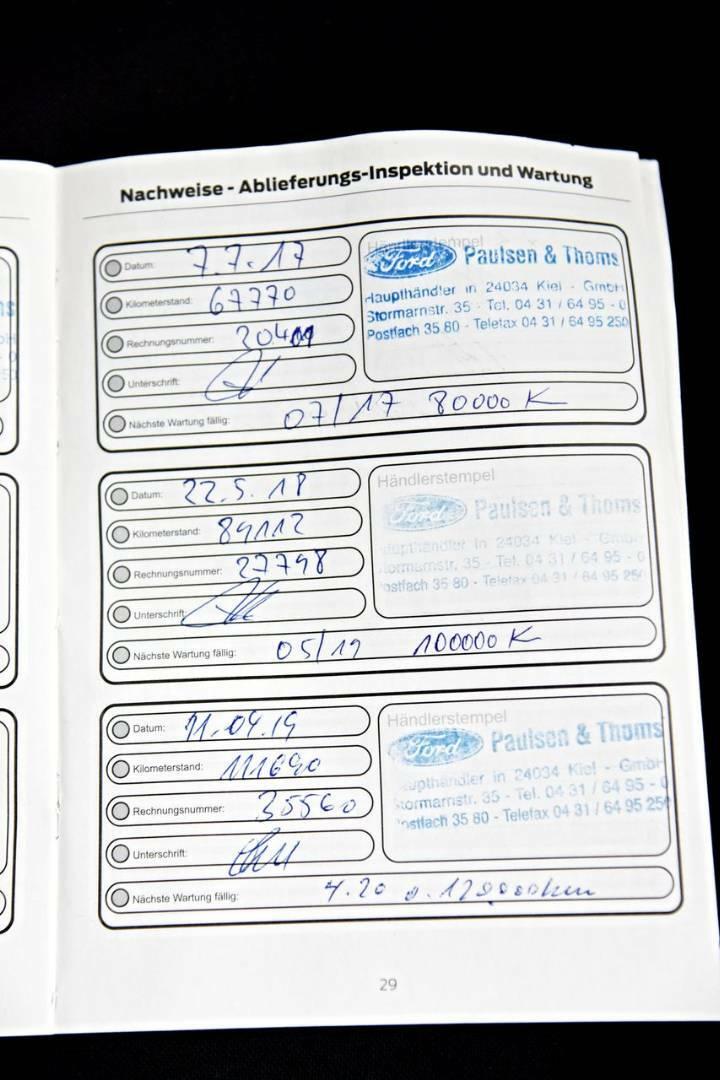 Nachweise - Ablieferungs-Inspektion und Wartung
Datum: 7.7.17
Kilometerstand: 67770
Rechnungsnummer:
Unterschrift:
Nächste Wartung fällig: 07/17 80000 K
Händlerstempel
Ford Paulsen & Thoms
Haupthändler in 24034 Kiel - GmbH
Stormarnstr. 35 - Tel. 04 31 / 64 95 - 0
Postfach 35 80 - Telefax 04 31 / 64 95 250
Datum: 22.5.18
Kilometerstand: 89112
Rechnungsnummer: 27798
Unterschrift:
Nächste Wartung fällig: 05/19 100000 K
Händlerstempel
Ford Paulsen & Thoms
Haupthändler in 24034 Kiel - GmbH
Stormarnstr. 35 - Tel. 04 31 / 64 95 - 0
Postfach 35 80 - Telefax 04 31 / 64 95 250
Datum: 11.04.19
Kilometerstand: 111690
Rechnungsnummer: 35560
Unterschrift:
Nächste Wartung fällig: 4.20
Händlerstempel
Ford Paulsen & Thoms
Haupthändler in 24034 Kiel - GmbH
Stormarnstr. 35 - Tel. 04 31 / 64 95 - 0
Postfach 35 80 - Telefax 04 31 / 64 95 250
29